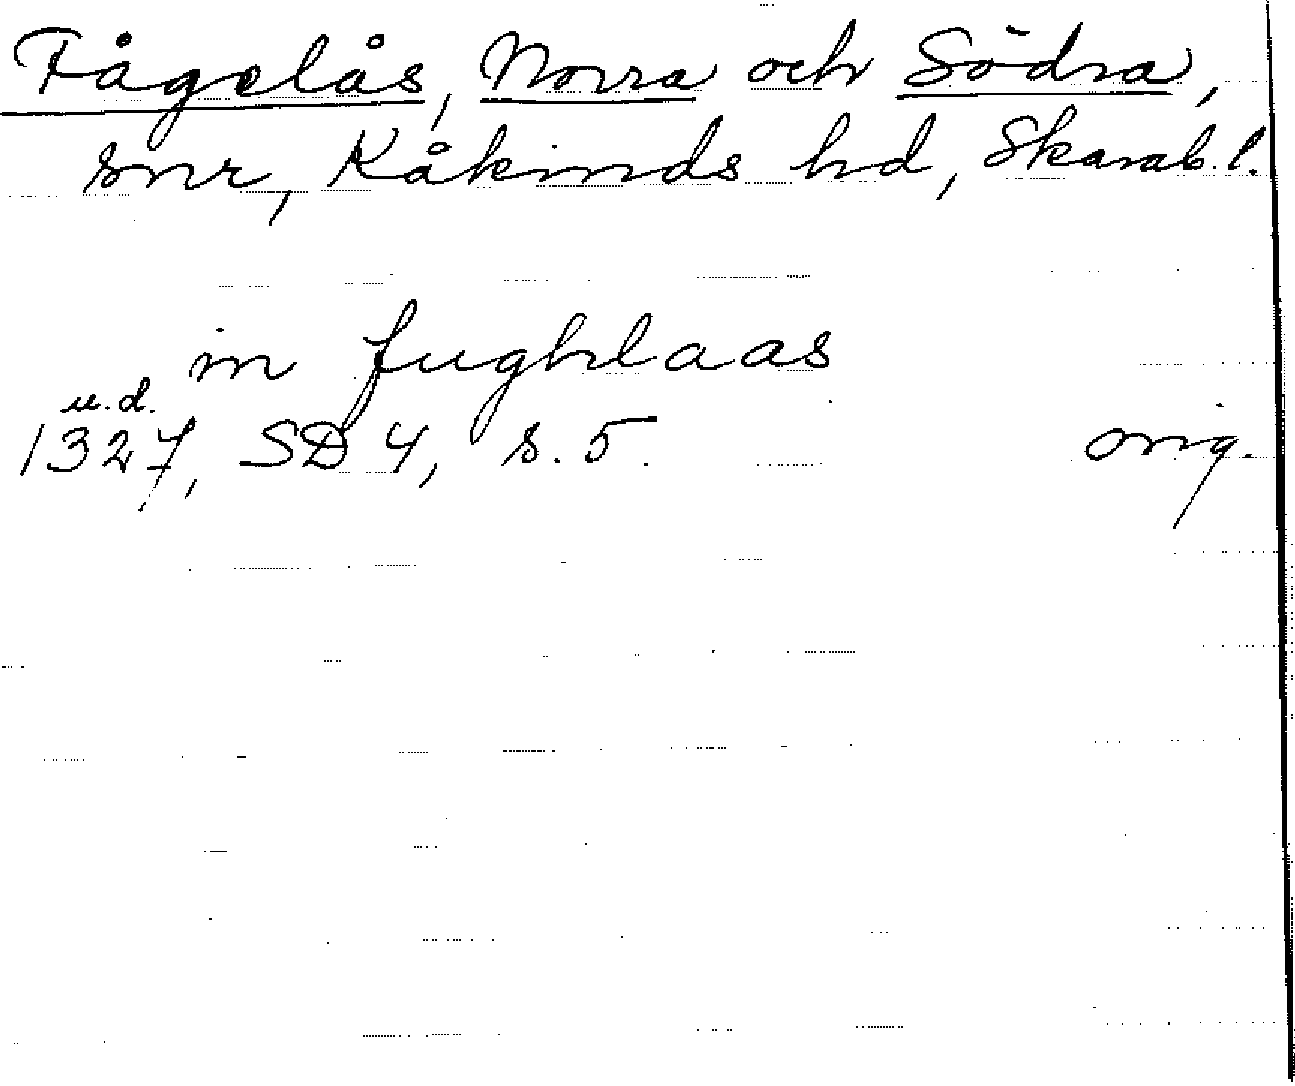 Fågelås, Norra och Södra,
snr, Kåkinds hd, Skarab. l.
in fughlaas
u.d.
1327, SD 4, s. 5. orig.